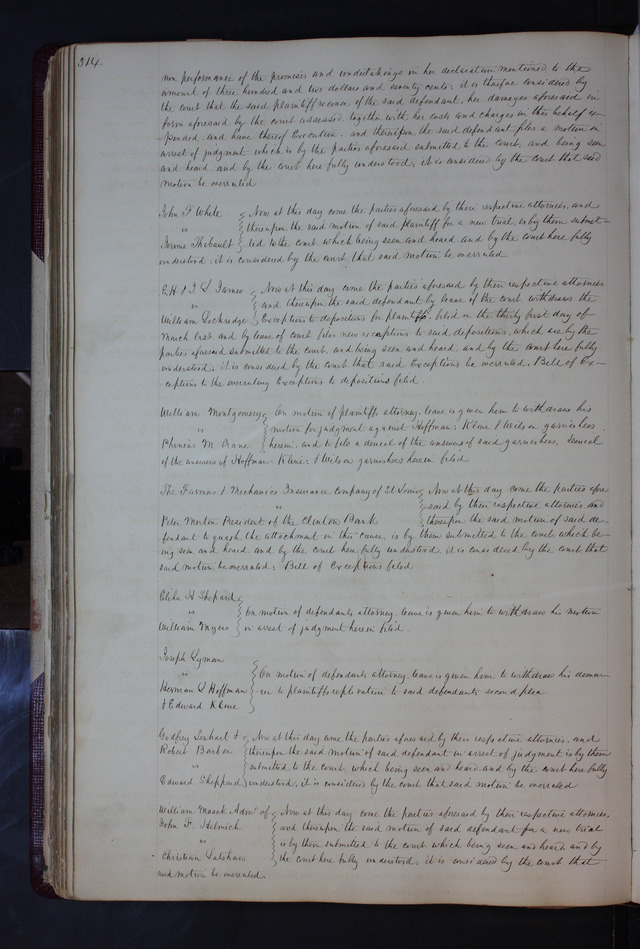 314.
non performance of the promises and undertakings in her declaration mentioned to the
amount of three hundred and two dollars and seventy cents; it is therefore considered by
the court that the said plaintiff recover of the said defendant, her damages aforesaid in
form aforesaid by the court assessed, together with her costs and charges in this behalf ex-
pended, and have thereof Execution. and thereupon the said defendant files a motion in
arrest of judgment which is by the parties aforesaid submitted to the court, and being seen
and heard and by the court here fully understood; it is considered by the court that said
motion be overruled
John F White { Now at this day come the parties aforesaid by their respective attornies, and
" { thereupon the said motion of said plaintiff for a new trial, is by them submit-
Jerome Thibault { ted to the court, which being seen and heard and by the court here fully
understood; it is considered by the court that said motion be overruled
E. H & J. S. James { Now at this day come the parties aforesaid by their respective attornies
" { and thereupon the said defendant by leave of the court withdraws the
William Lockridge { Exceptions to depositions for plaintiffs filed on the thirty first day of
March last. and by leave of court files new exceptions to said depositions, which are by the
parties aforesaid submitted to the court, and being seen and heard, and by the court here fully
understood; it is considered by the court that said Exceptions be overruled. Bill of Ex-
ceptions to the overruling Exceptions to depositions filed.
William Montgomery { On motion of plaintiffs attorney, leave is given him to withdraw his
" { motion for judgment against Hoffman, Kline & Wilson garnishees
Phineas M. Crane { herein; and to file a denial of the answers of said garnishees. Denial
of the answers of Hoffman, Kline, & Wilson garnishees herein filed
The Farmers & Mechanics Insurance Company of St Louis { Now at this day come the parties afore
" { said by their respective attornies and
Peter Merton President of the Clinton Bank { thereupon the said motion of said de-
fendant to quash the attachment in this cause, is by them submitted to the court, which be-
ing seen and heard and by the court here fully understood, it is considered by the court that
said motion be overruled; Bill of Exceptions filed
Elihu H Shepard {
" { On motion of defendants attorney, leave is given him to withdraw his motion
William Myers { in arrest of judgment herein filed.
Joseph Lyman
" { On motion of defendants attorney, leave is given him to withdraw his demur-
Herman L Hoffman { er to plaintiffs replication to said defendants second plea
& Edward Kline
Godfrey Lenhart & { Now at this day came the parties aforesaid by their respective attornies, and
Robert Barber { thereupon the said motion of said defendant in arrest of judgment is by them
" { submitted to the court, which being seen and heard, and by the court here fully
Edward Sheppard { understood, it is considered by the court that said motion be overruled
William Maack Admr of { Now at this day come the parties aforesaid by their respective attornies,
John F. Helmich { and thereupon the said motion of said defendant for a new trial
" { is by them submitted to the court, which being seen and heard, and by
Christian { the court here fully understood; it is considered by the court that
said motion be overruled.